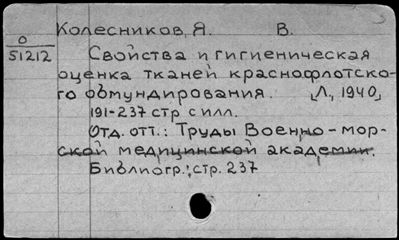 Колесников, Я. В.
0
51212
Свойства и гигиеническая
оценка тканей краснофлотско-
го обмундирования. [Л., 1940]
191-237 стр с илл.
Отд. отт.: Труды Военно-мор-
ской медицинской академии.
Библиогр.: стр. 237